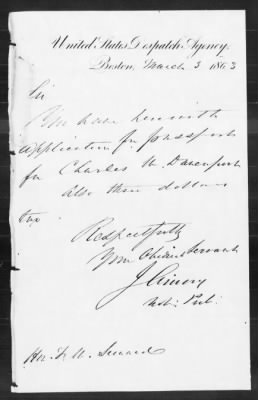 United States Despatch Agency,
Boston, March 3 1863
Sir
You have herewith
application for passport
for Charles W. Davenport
also three dollars
tax
Respectfully
Your Obedient Servant
Not: Pub.
Hon. F. W. Seward